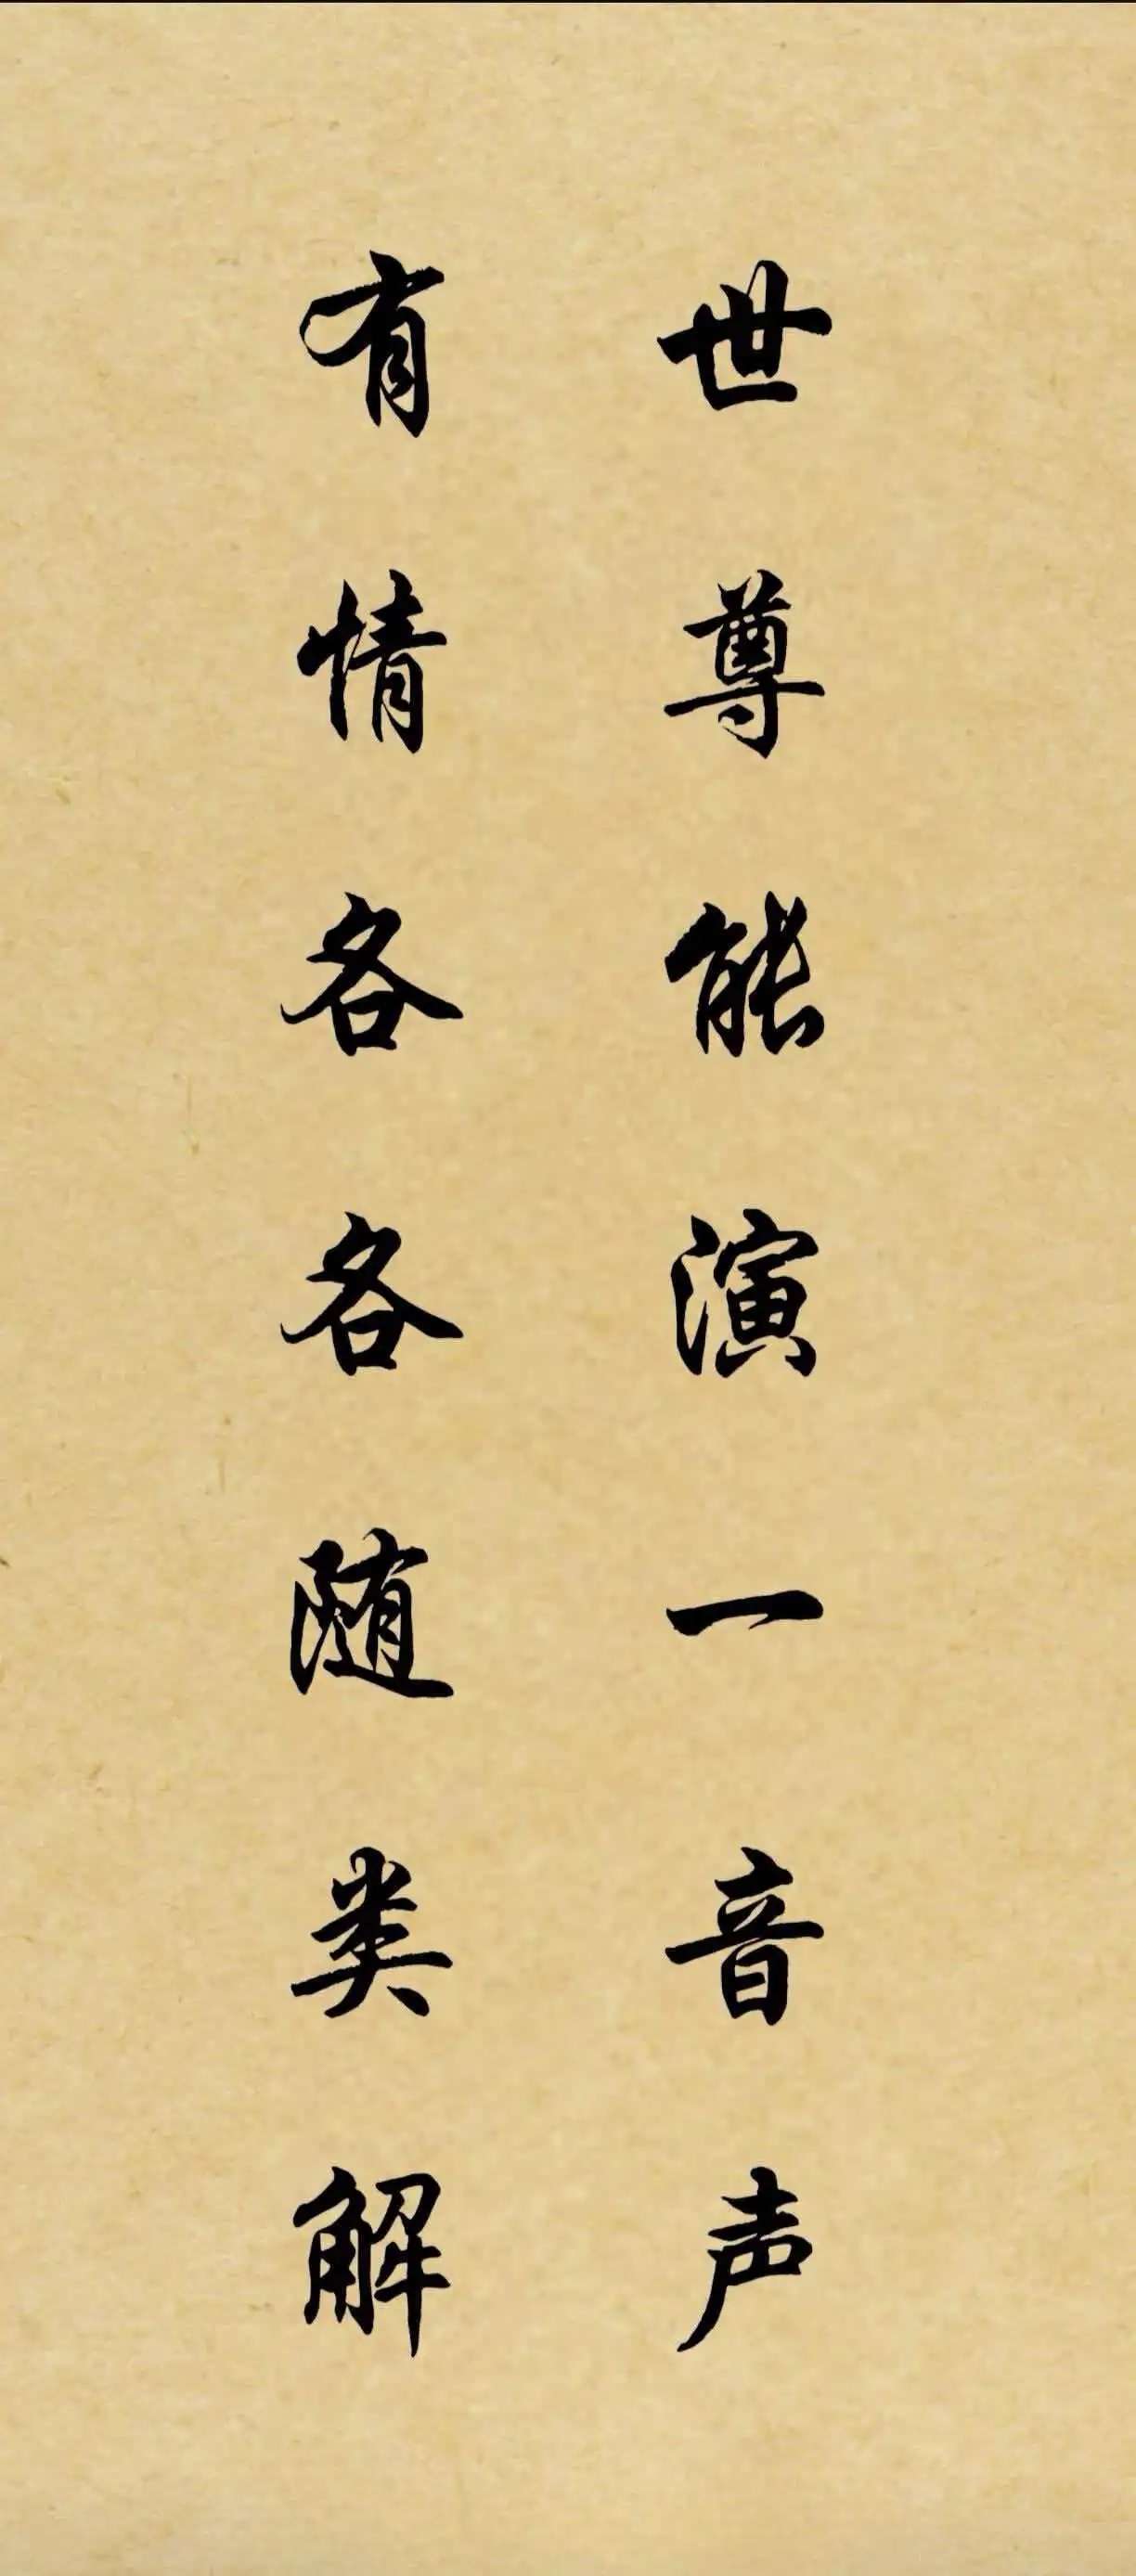 世尊能演一音声
有情各各随类解